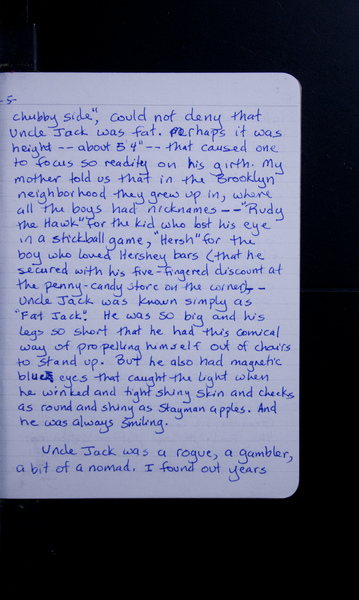 -5-
chubby side", could not deny that
Uncle Jack was fat. Perhaps it was
height -- about 5'4" -- that caused one
to focus so readily on his girth. My
mother told us that in the Brooklyn
neighborhood they grew up in, where
all the boys had nicknames -- "Rudy
the Hawk" for the kid who lost his eye
in a stickball game, "Hersh" for the
boy who loved Hershey bars (that he
secured with his five-fingered discount at
the penny-candy store on the corner), -
Uncle Jack was known simply as
"Fat Jack". He was so big and his
legs so short that he had this comical
way of propelling himself out of chairs
to stand up. But he also had magnetic
blue eyes that caught the light when
he winked and tight shiny skin and cheeks
as round and shiny as Stayman apples. And
he was always smiling.
Uncle Jack was a rogue, a gambler,
a bit of a nomad. I found out years